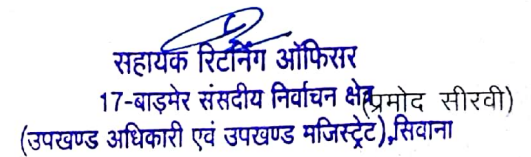 सहायक रिटर्निंग ऑफिसर
17-बाड़मेर संसदीय निर्वाचन क्षेत्र (प्रमोद सीरवी)
(उपखण्ड अधिकारी एवं उपखण्ड मजिस्ट्रेट), सिवाना